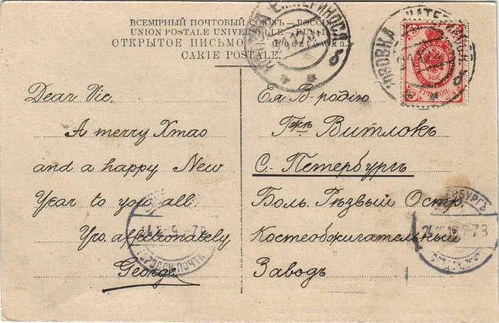 ВСЕМІРНЫЙ ПОЧТОВЫЙ СОЮЗЪ РОССІЯ
UNION POSTALE UNIVERSELLE
ОТКРЫТОЕ ПИСЬМО
CARTE POSTALE
Dear Vic.
A merry Xmas
and a happy New
Year to you all.
Yrs. affectionately
George
Ея В-родію
Витлокъ
С. Петербургъ
Бол. Рѣзвый Остр.
Костеобжигательный
Заводъ